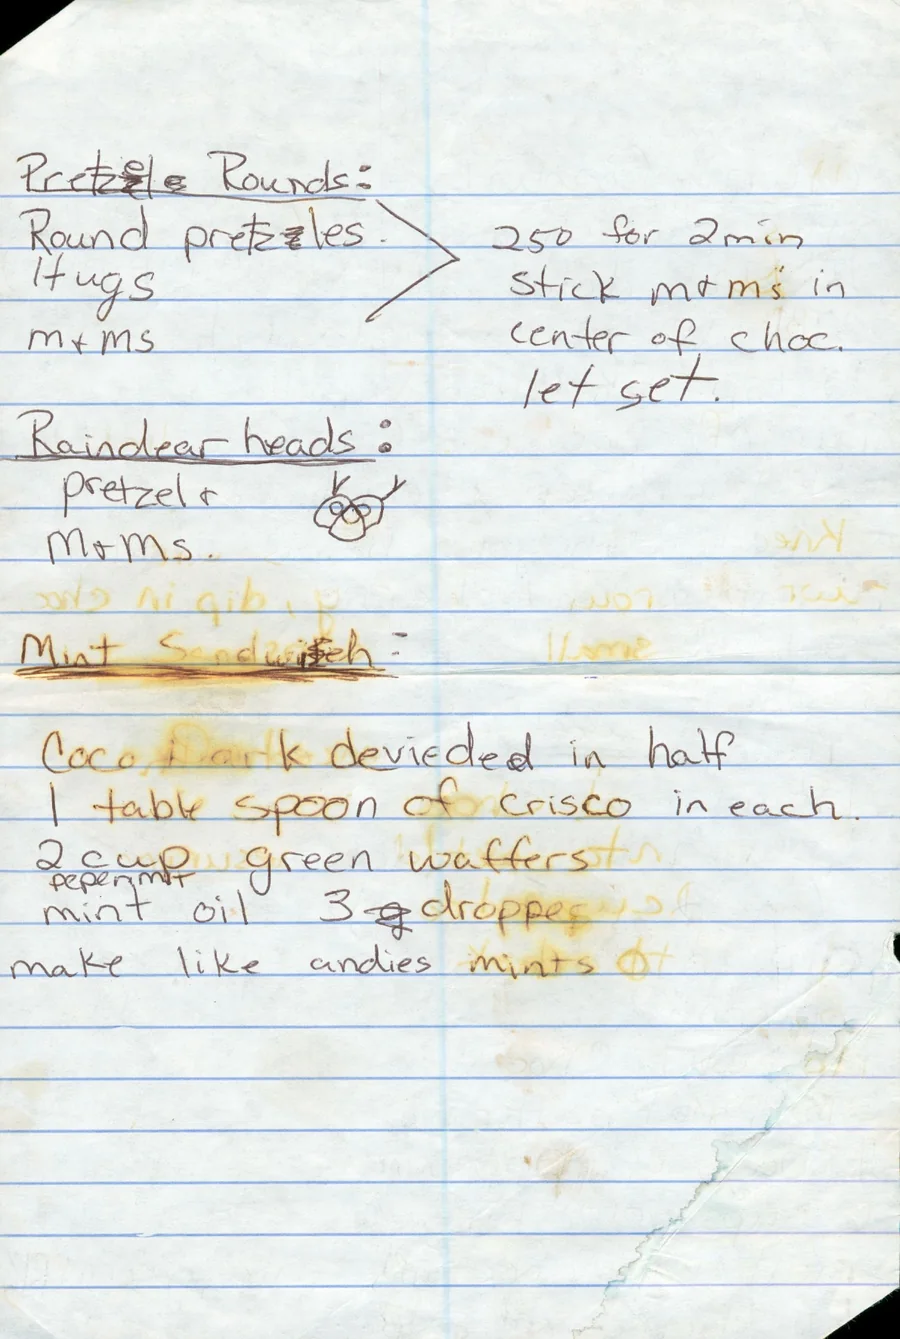 Pretzele Rounds:
Round pretzles.
Hugs
m+ms
250 for 2min
stick m+m's in
center of choc.
let set.
Raindear heads:
pretzel +
M+ms.
Mint Sandwich:
Coco Dark devieded in half
1 table spoon of crisco in each.
2 cup green waffers
peperimit
mint oil 3 droppes
make like andies mints